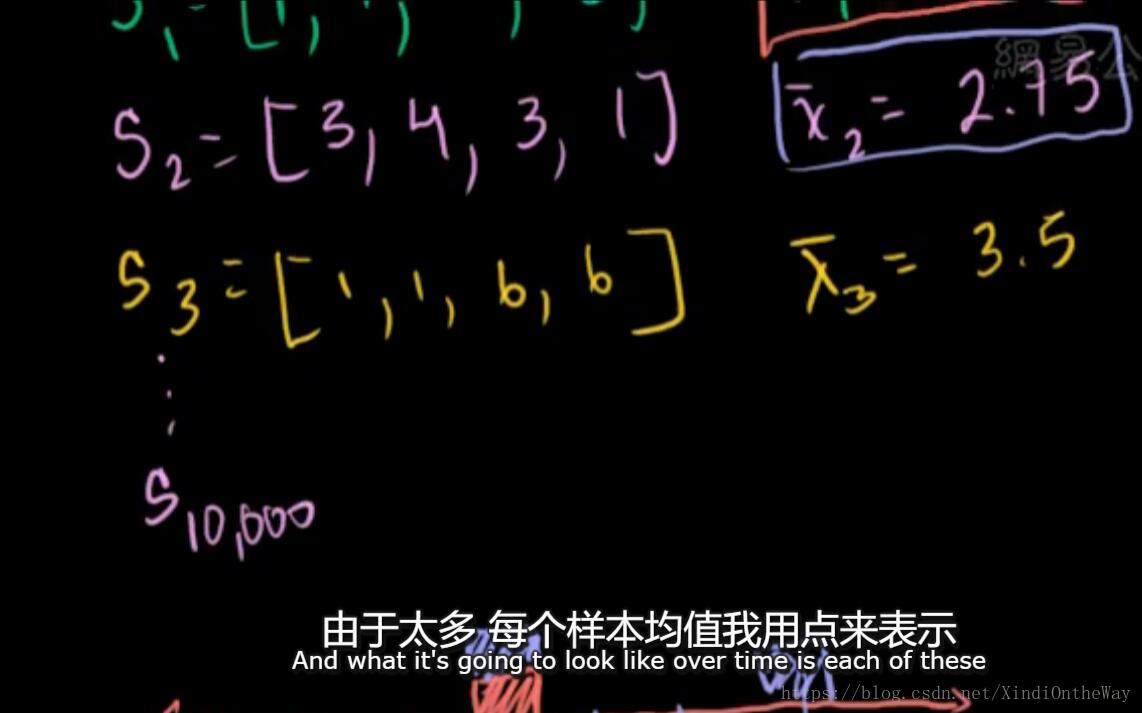 S₂ = [3, 4, 3, 1] x̄₂ = 2.75
S₃ = [1, 1, 6, 6] x̄₃ = 3.5
S₁₀,₀₀₀
由于太多 每个样本均值我用点来表示
And what it's going to look like over time is each of these
https://blog.csdn.net/XindiOntheWay